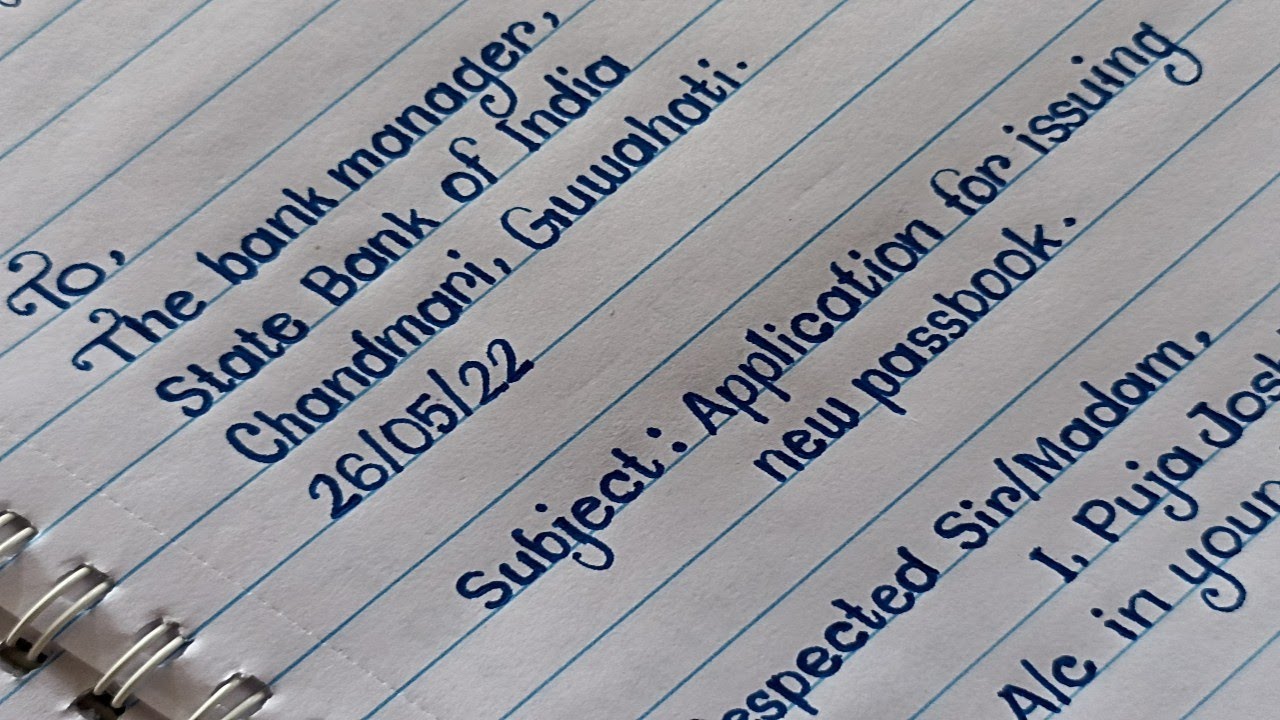 To,
The bank manager,
State Bank of India
Chandmari, Guwahati.
26/05/22
Subject: Application for issuing
new passbook.
Sir/Madam,
I, Puja
A/c in your